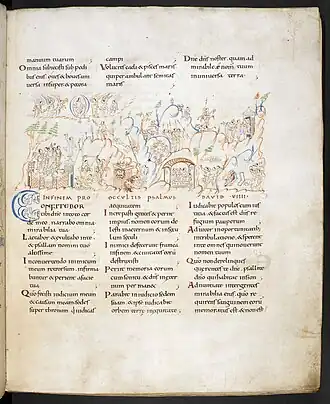 manuum tuarum
Omnia subiecisti sub pedi
bus eius oues & boues uni
uersa insuper & pecora
campi
Volucres caeli & pisces maris
qui perambulant semitas
maris
Dne dns noster quam ad
mirabile e nomen tuum
in uniuersa terra
IN FINEM PRO OCCULTIS PSALMUS DAVID VIIII
CONFITEBOR
tibi dne in toto cor
de meo narrabo omnia
mirabilia tua
Laetabor & exultabo in te
& psallam nomini tuo
altissime
In conuertendo inimicum
meum retrorsum infirma
buntur & perient a facie
tua
Qm fecisti iudicium meum
& causam meam sedes
super thronum qui iudicas
aequitatem
Increpasti gentes & periit
impius nomen eorum de
lesti in aeternum & in secu
lum seculi
Inimici defecerunt frameae
in finem & ciuitates eorum
destruxisti
Periit memoria eorum
cum sonitu & dns in aeter
num permanet
Parauit in iudicio sedem
suam & ipse iudicabit
orbem terrae in equitate
Iudicabit populos cum ius
titia & factus est dns re
fugium pauperum
Adiutor in oportunitatib;
in tribulatione & sperent
in te omnes qui nouerunt
nomen tuum
Qm non derelinques
querentes te dne psallite
dno qui habitat in sion
Adnuntiate inter gentes
mirabilia eius qm re
quirens sanguinem eorum
memoratus est & non est